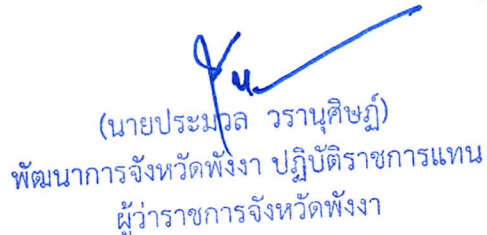 (นายประมวล วรานุศิษฏ์)
พัฒนาการจังหวัดพังงา ปฏิบัติราชการแทน
ผู้ว่าราชการจังหวัดพังงา